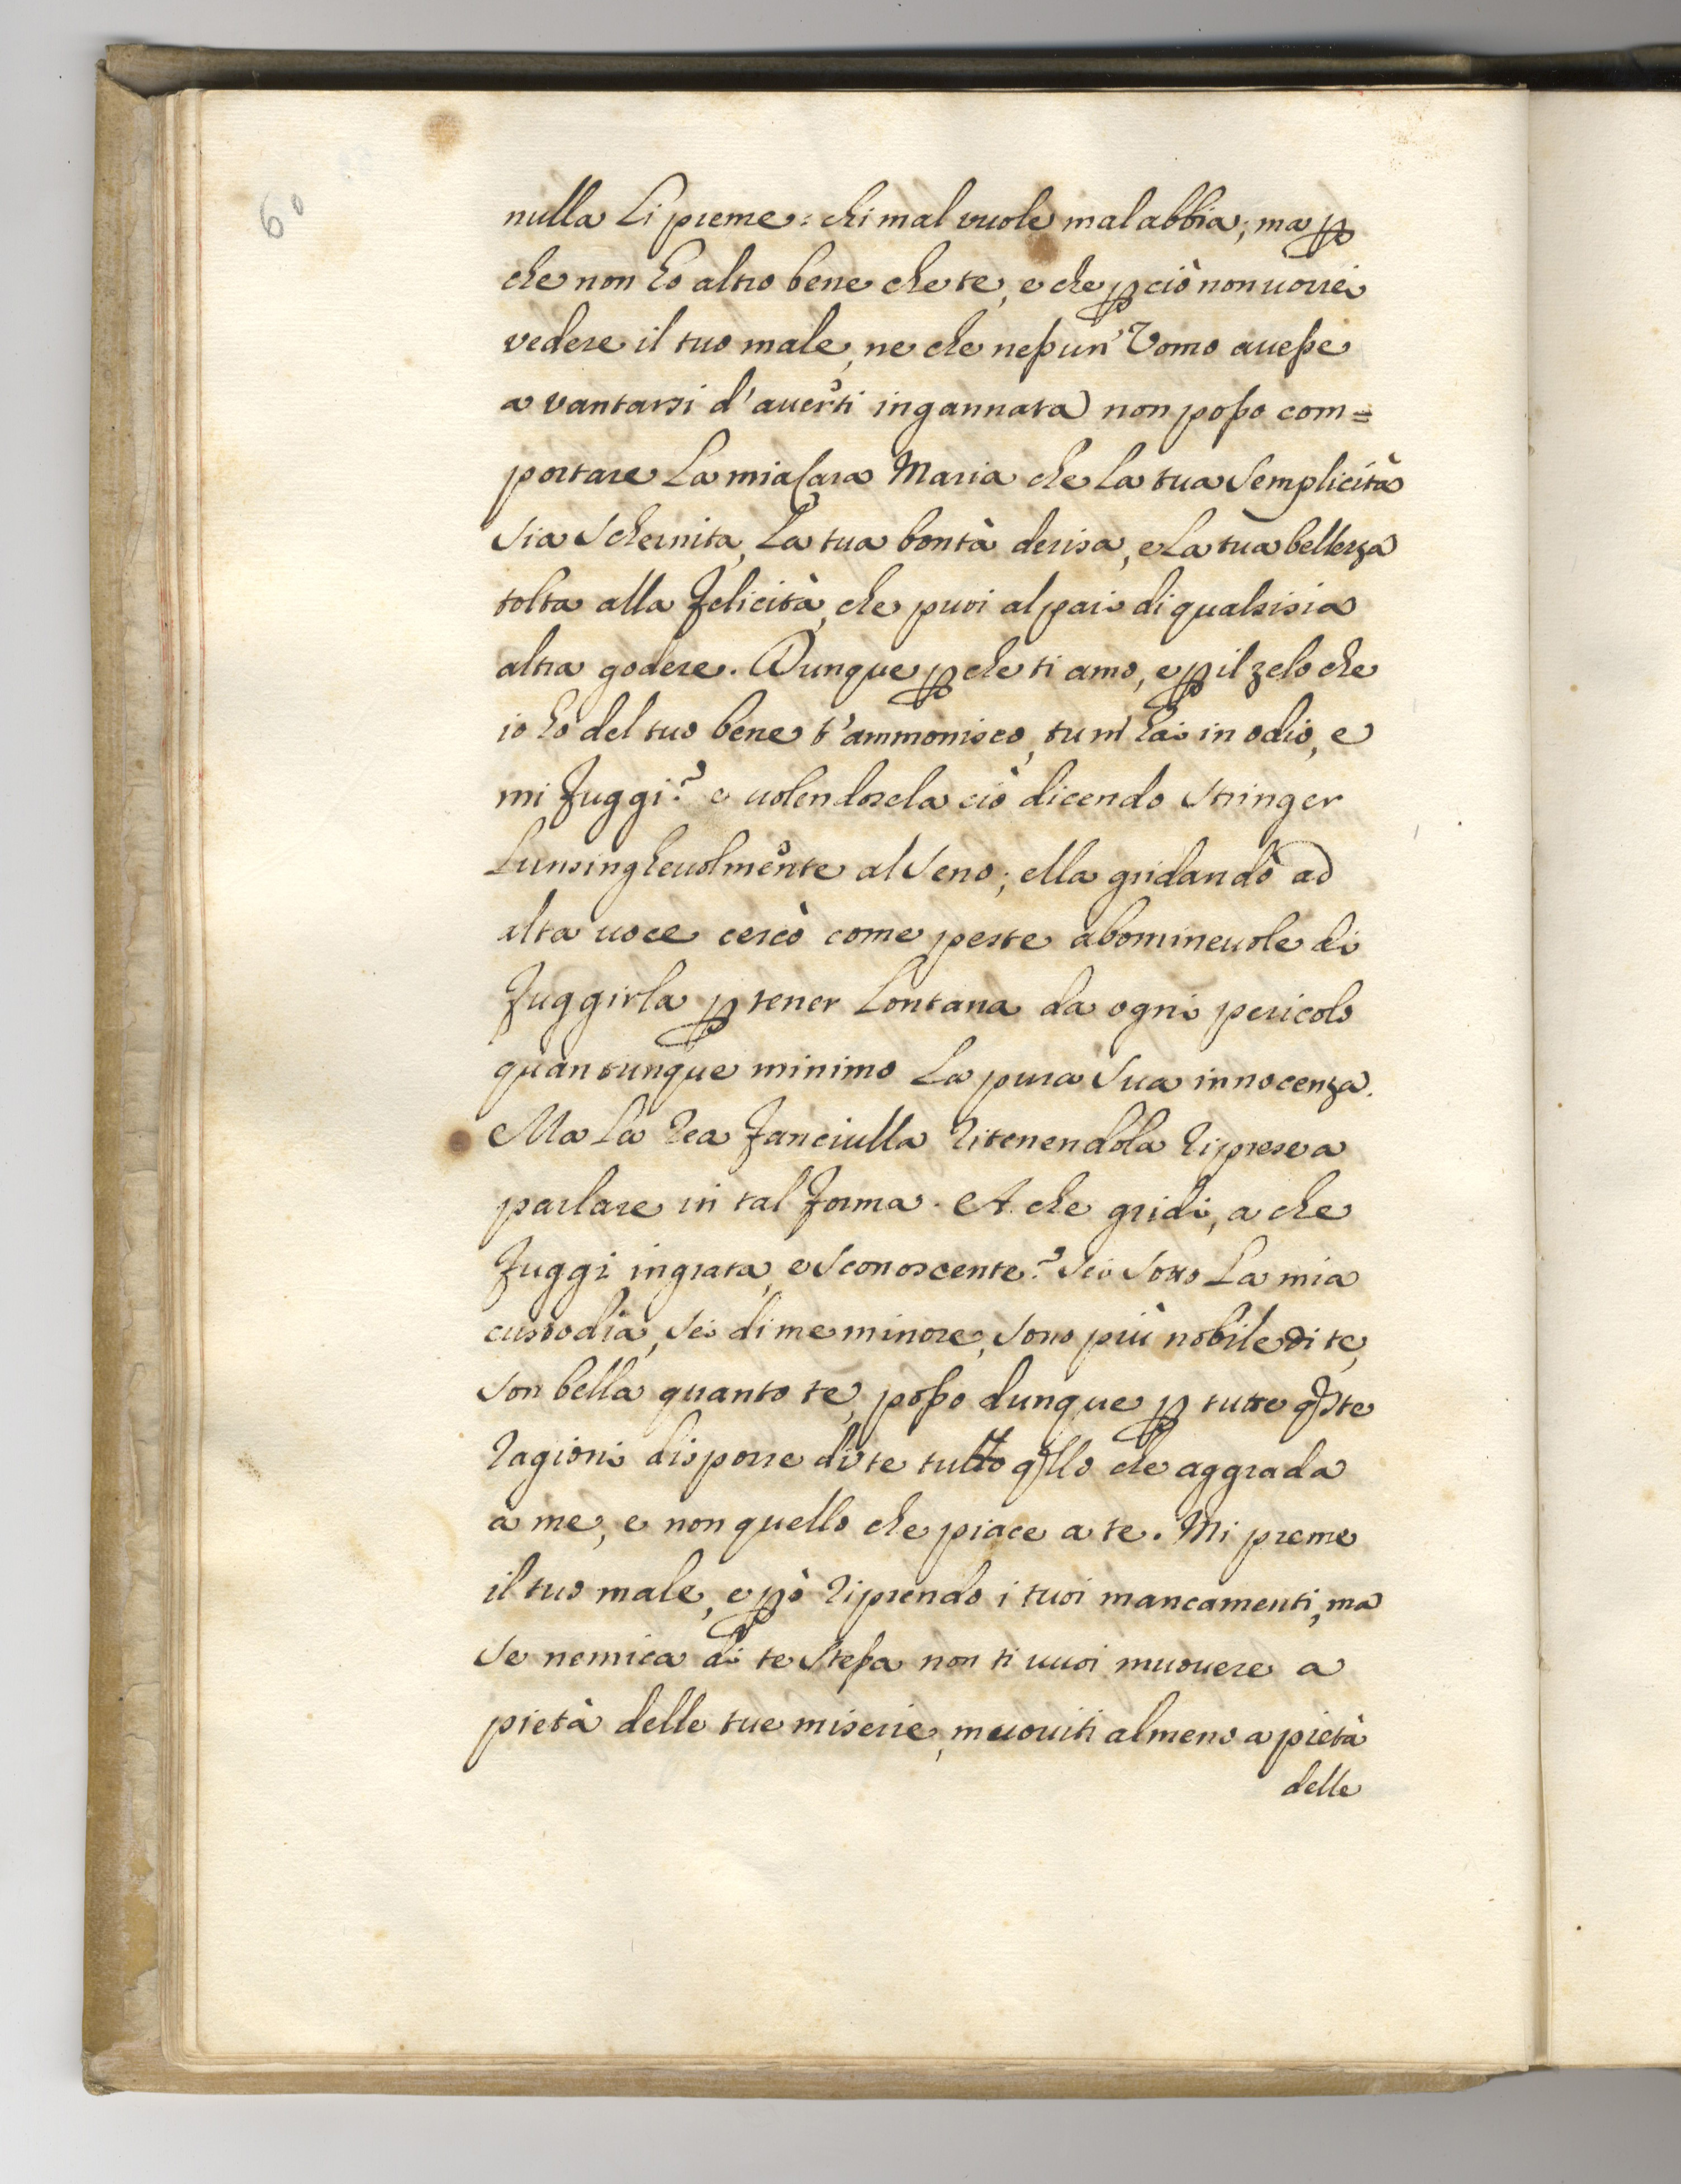 60
nulla li preme: chi mal vuole mal abbia; ma ꝑ
che non ho altro bene che te, e che ꝑciò non uorrei
vedere il tuo male, ne che neßun' Vomo aueße
a vantarsi d'auerti ingannata non poßo com=
portare la mia Cara Maria che la tua semplicità
sia schernita, la tua bontà derisa, e la tua bellezza
tolta alla felicità, che puoi al pari di qualsisia
altra godere. Dunque ꝑche ti amo, e ꝑ il zelo che
io ho del tuo bene t'ammonisco, tu m'hai in odio, e
mi fuggi? e uolendosela ciò dicendo stringer
lunsingheuolmente al seno; ella gridando ad
alta uoce cercò come peste abomineuole di
fuggirla ꝑ tener lontana da ogni pericolo
quantunque minimo la pura sua innocenza.
Ma la rea fanciulla ritenendola riprese a
parlare in tal forma. A che gridi, a che
fuggi ingrata, e sconoscente? sei sotto la mia
custodia, sei di me minore, sono più nobile di te,
son bella quanto te, poßo dunque ꝑ tutte qste
ragioni disporre di te tutto qllo che aggrada
a me, e non quello che piace a te. Mi preme
il tuo male, e ꝑò riprendo i tuoi mancamenti, ma
se nemica di te steßa non ti uuoi muouere a
pietà delle tue miserie, muouiti almeno a pietà
delle